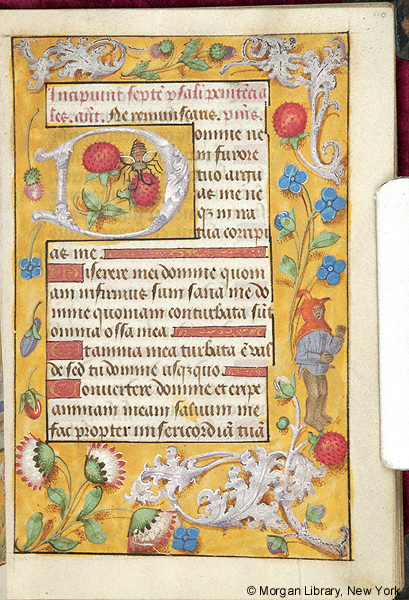 110
Incipiunt septē psalmi penitēcia
les. añt. Ne reminiscaris. psm̄s.
Domine ne
in furore
tuo argu
as me ne
qꝫ in ira
tua corripi
as me.
Miserere mei domine quoni
am infirmus sum sana me do
mine quoniam conturbata sūt
omnia ossa mea
Et anima mea turbata ē val
de sed tu domine usqꝫquo
Convertere domine et eripe
animam meam salvum me
fac propter misericordiā tuā
© Morgan Library, New York